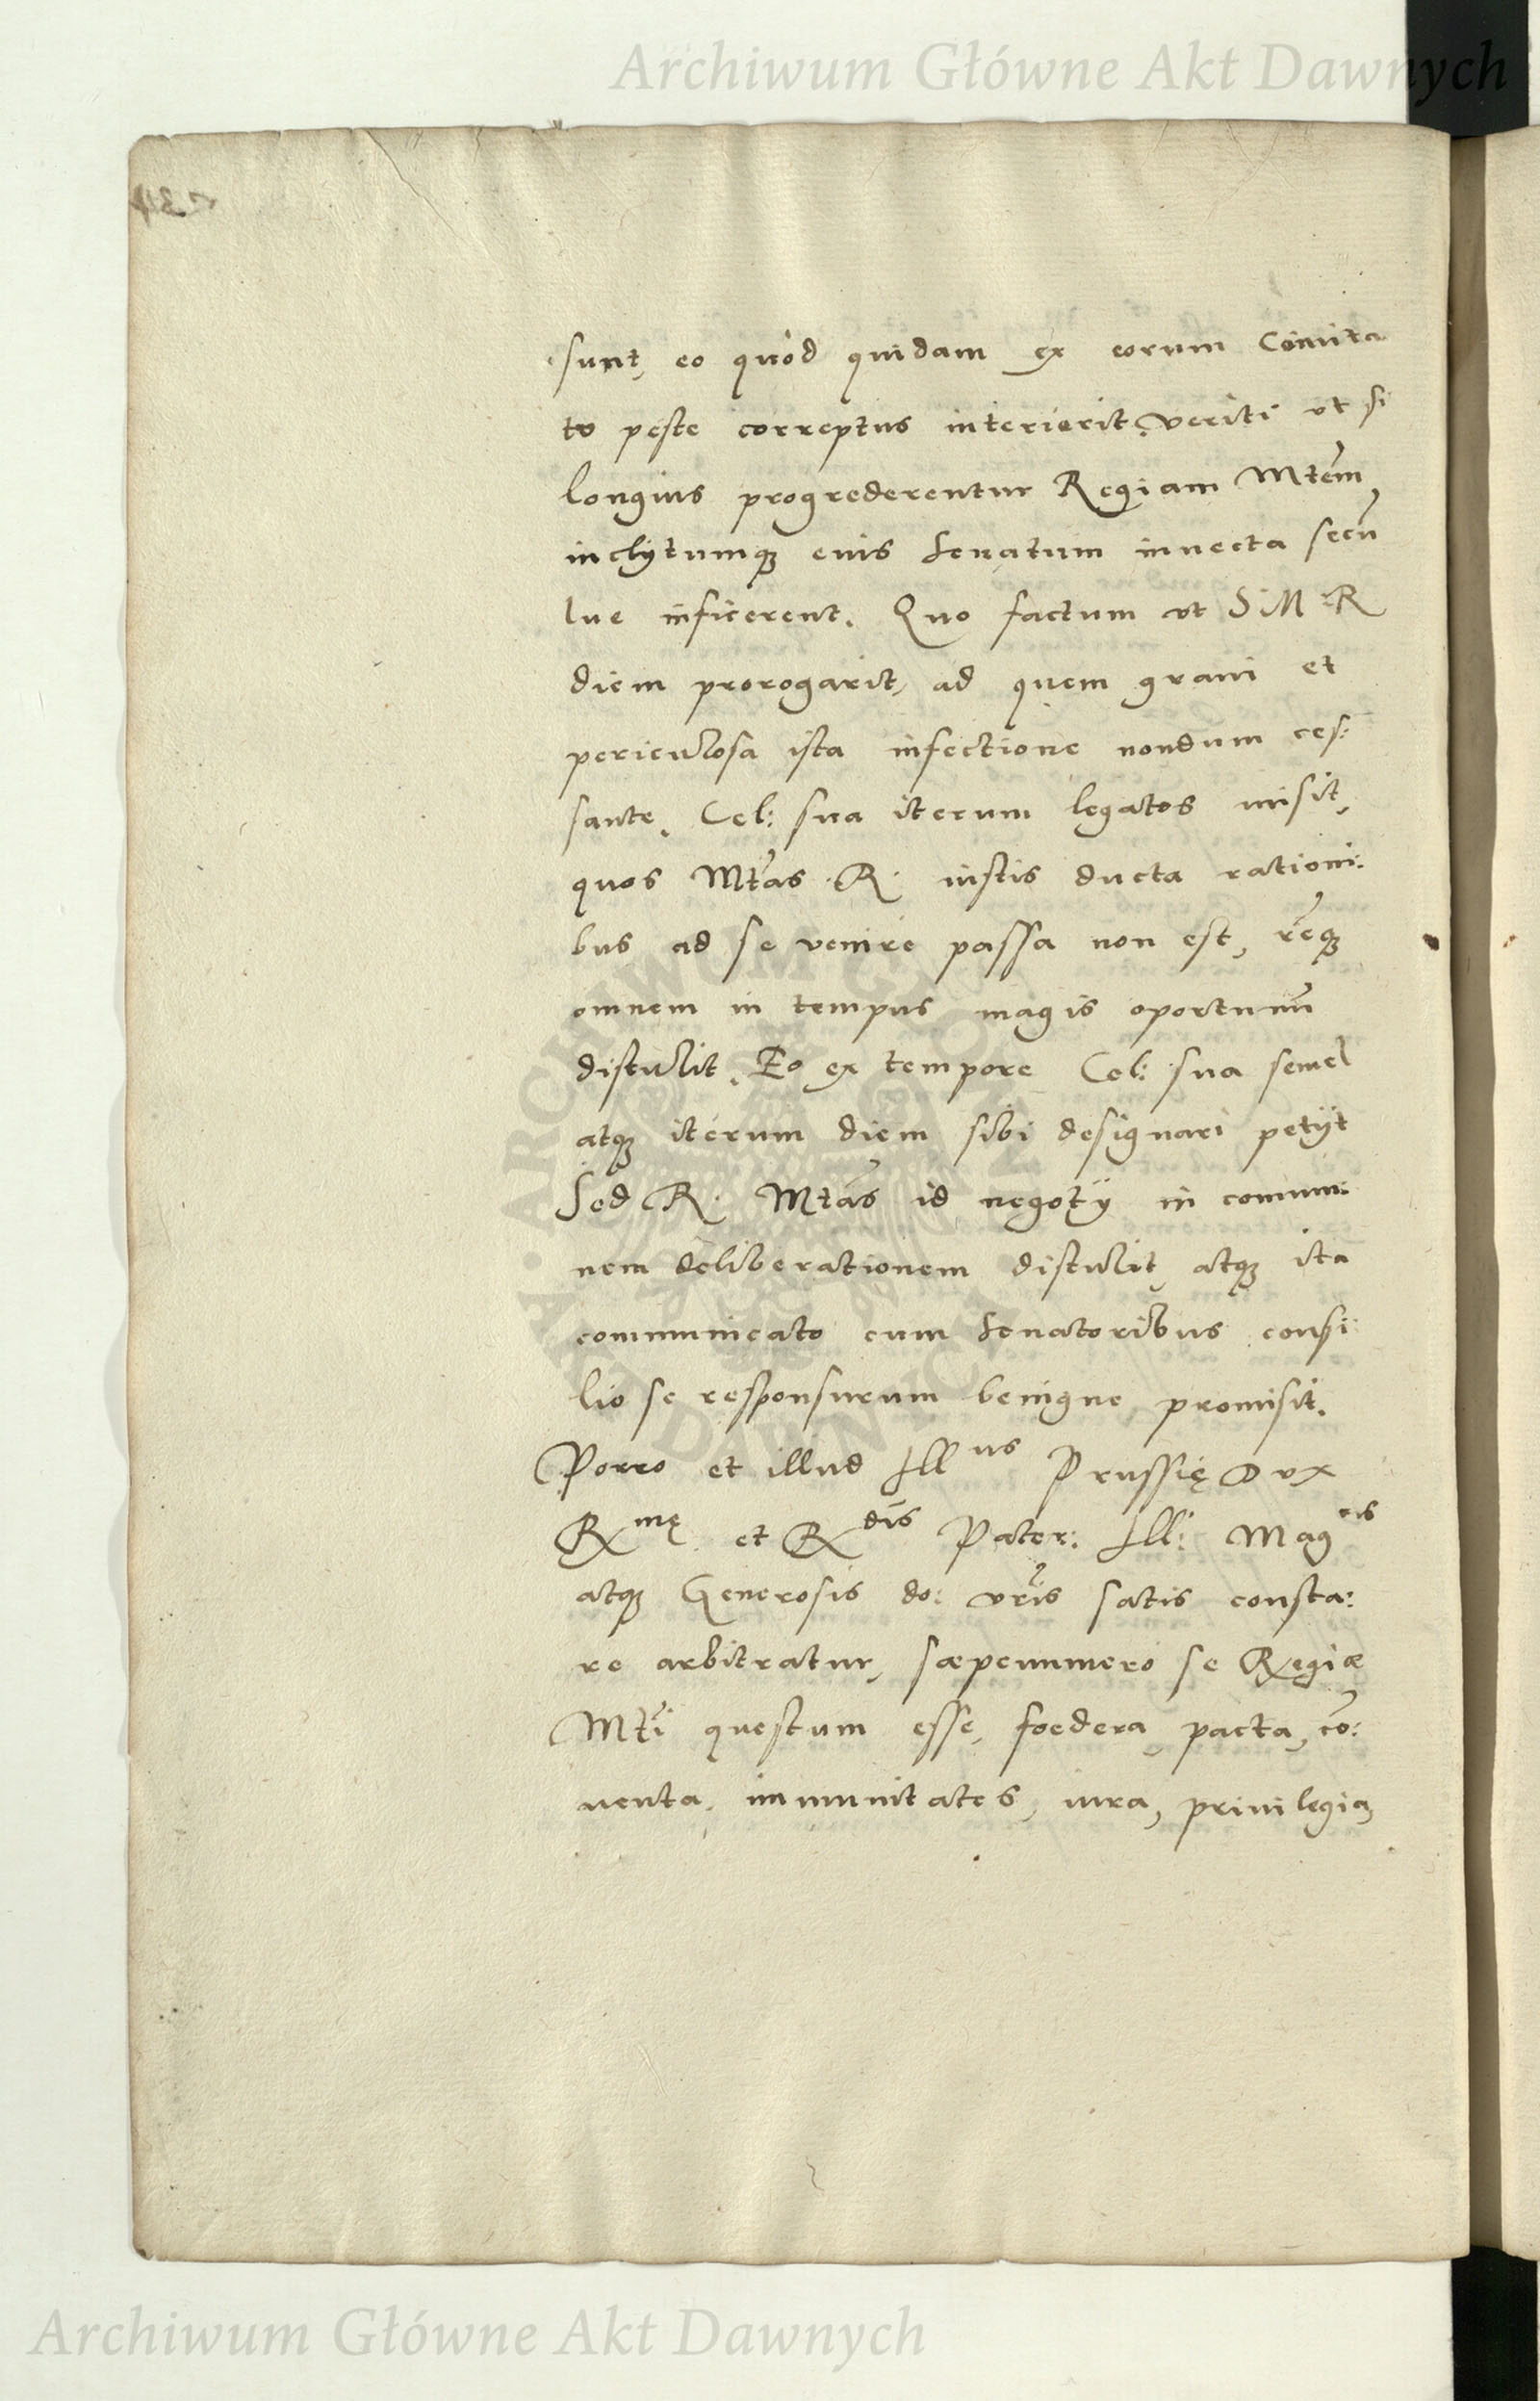 Archiwum Główne Akt Dawnych
sunt, eo quòd quidam ex eorum Comita
to peste correptus interierit, veriti ut si
longius progrederentur Regiam Mtem,
inclytumq; eius Senatum inuecta secū
lue inficerent. Quo factum ut S: M: R
diem prorogarit, ad quem graui et
periculosa ista infectione nondum ces:
sante. Cel: sua iterum legatos misit,
quos Mtas R. iustis ducta rationi:
bus ad se venire passa non est, remq;
omnem in tempus magis oportunū
distulit. Eo ex tempore Cel: sua semel
atq; iterum diem sibi designari petijt
Sed R. Mtas id negotij in commu:
nem deliberationem distulit, atq; ita
communicato cum Senatoribus consi
lio se responsurum benigne promisit.
Porro et illud Ill us Prussię Dux
R mę et R dis Pater: Ill: Mag cis
atq; Generosis do: vris satis consta:
re arbitratur, sæpenumero se Regiæ
Mti questum esse, foedera, pacta, cō:
uenta, immunitates, iura, priuilegia,
ARCHIWUM GŁÓWNE AKT DAWNYCH
Archiwum Główne Akt Dawnych